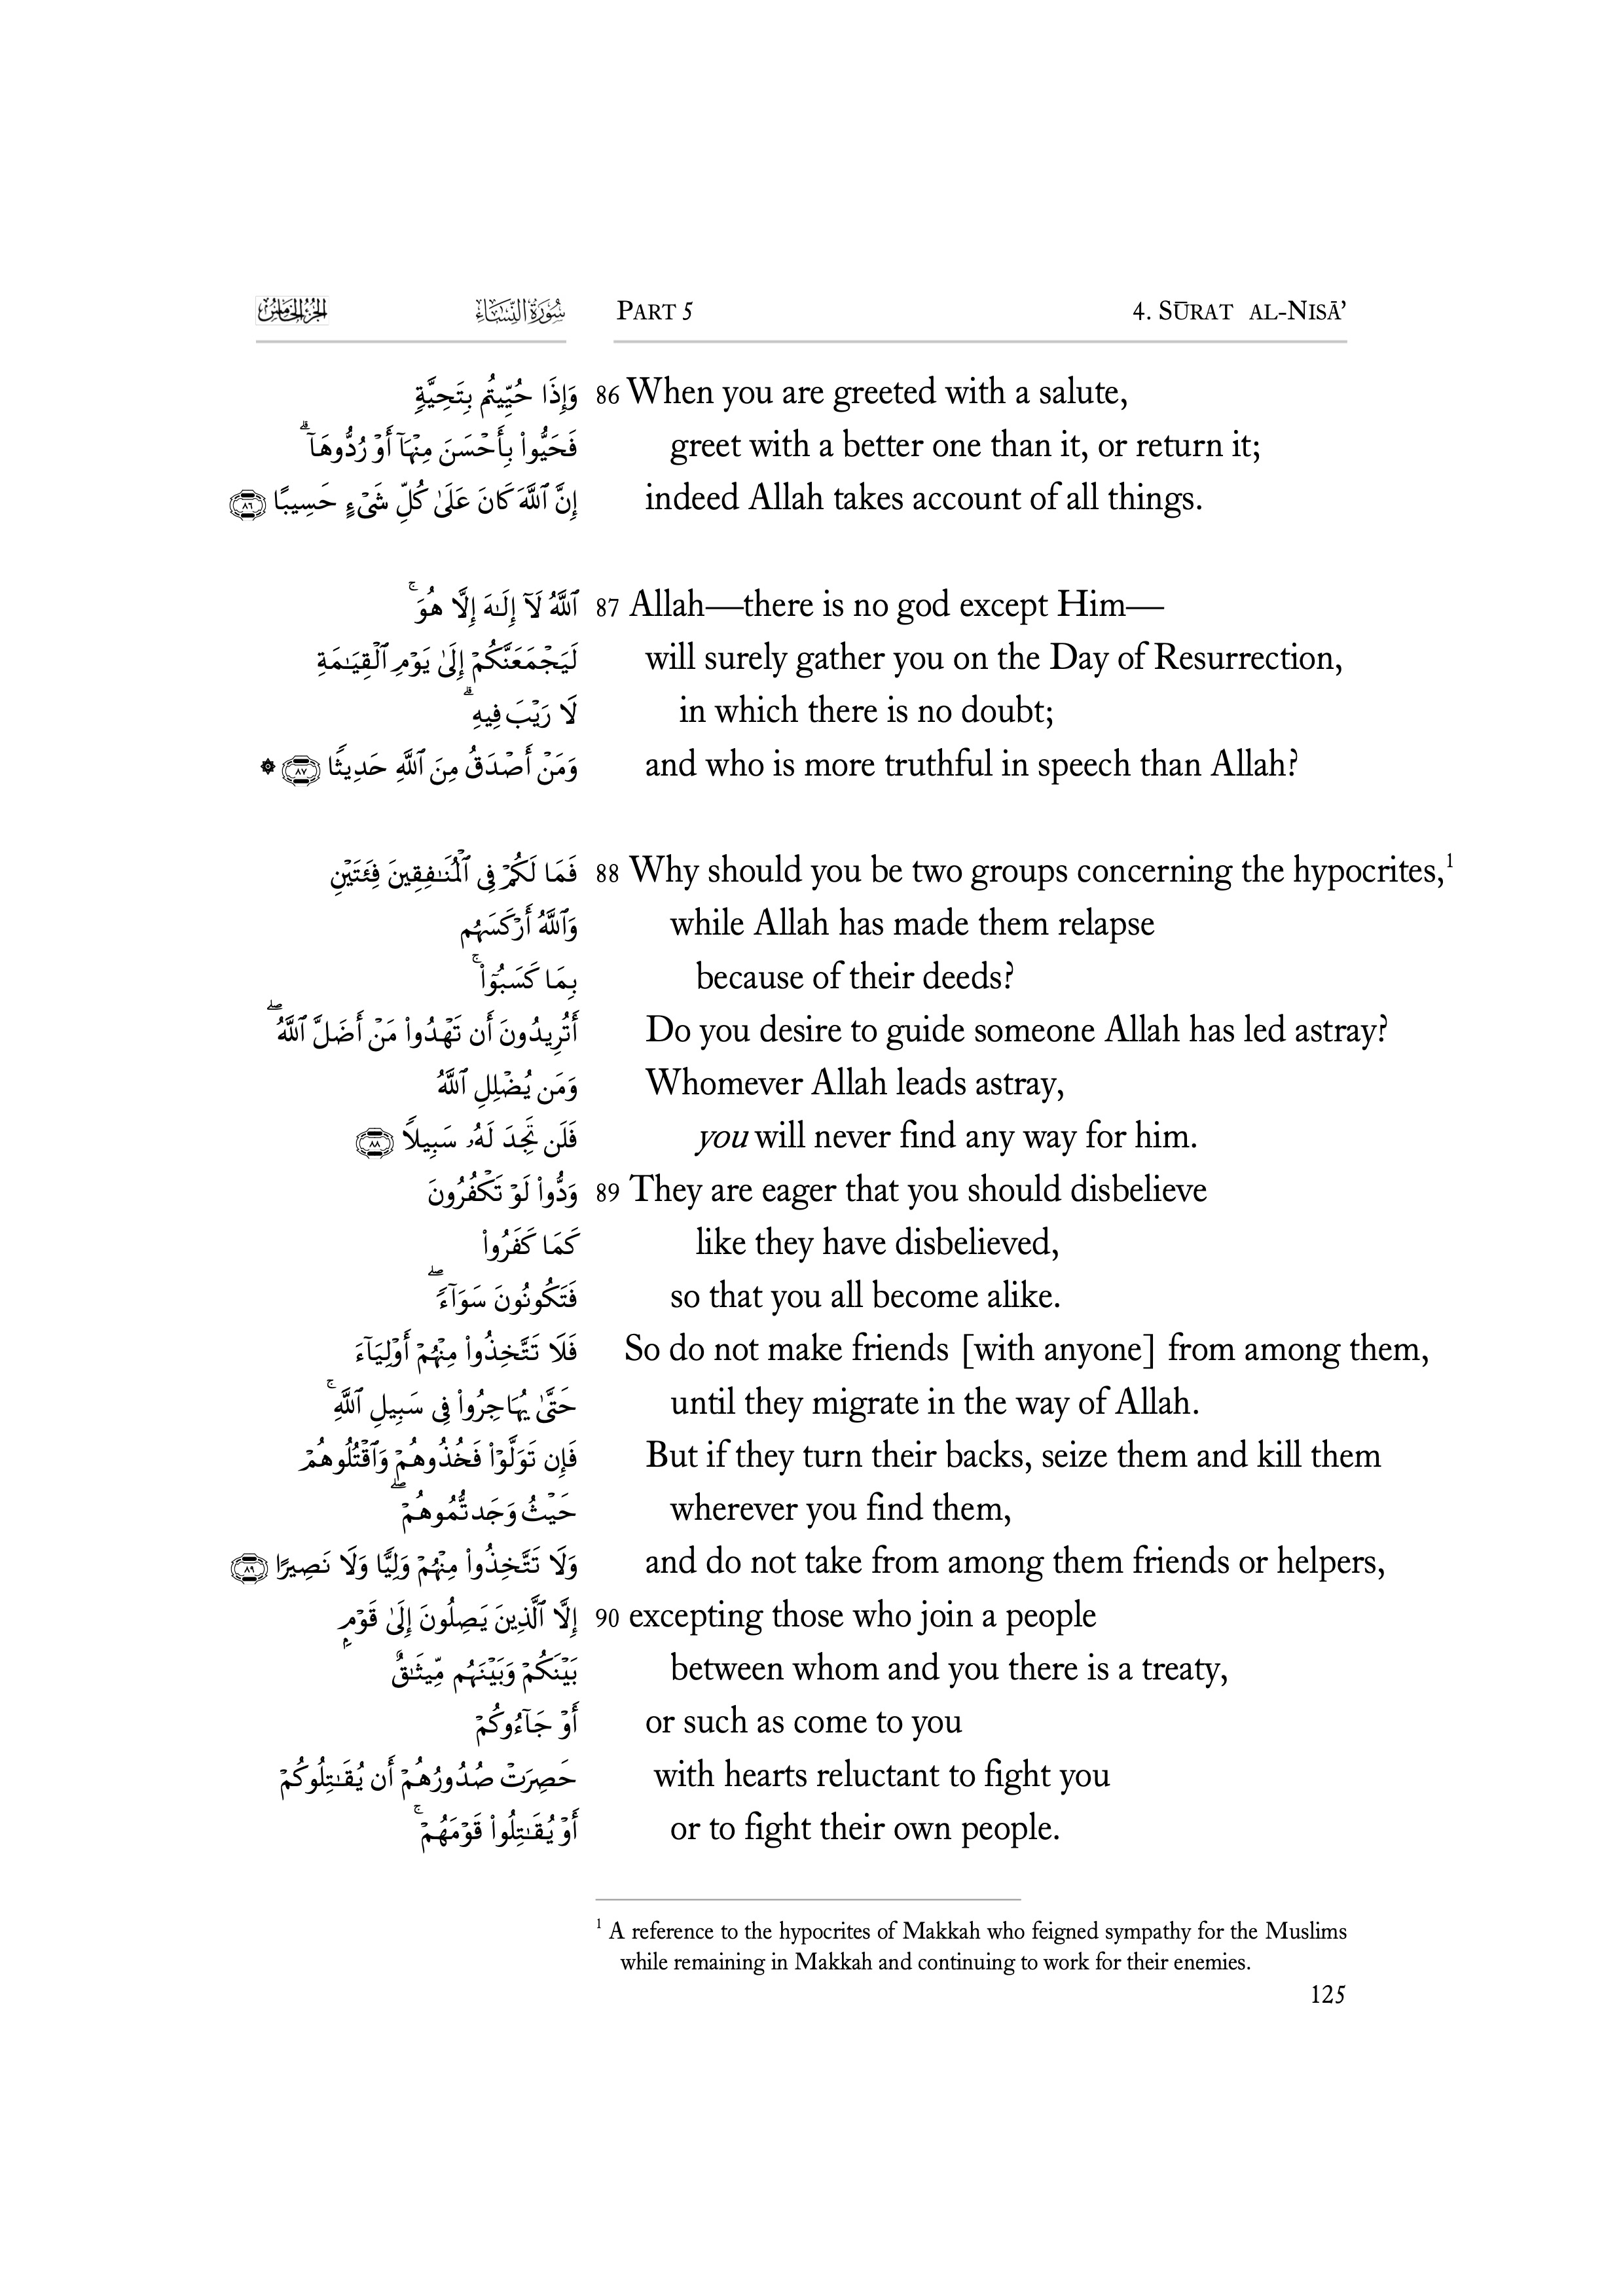 الجزء الخامس سورة النساء PART 5 4. SŪRAT AL-NISĀ’
وَإِذَا حُيِّيتُم بِتَحِيَّةٍ 86 When you are greeted with a salute,
فَحَيُّوا۟ بِأَحْسَنَ مِنْهَآ أَوْ رُدُّوهَآ ۗ greet with a better one than it, or return it;
إِنَّ ٱللَّهَ كَانَ عَلَىٰ كُلِّ شَىْءٍ حَسِيبًا ٨٦ indeed Allah takes account of all things.
ٱللَّهُ لَآ إِلَـٰهَ إِلَّا هُوَ ۚ 87 Allah—there is no god except Him—
لَيَجْمَعَنَّكُمْ إِلَىٰ يَوْمِ ٱلْقِيَـٰمَةِ will surely gather you on the Day of Resurrection,
لَا رَيْبَ فِيهِ ۗ in which there is no doubt;
وَمَنْ أَصْدَقُ مِنَ ٱللَّهِ حَدِيثًا ٨٧ ۞ and who is more truthful in speech than Allah?
فَمَا لَكُمْ فِى ٱلْمُنَـٰفِقِينَ فِئَتَيْنِ 88 Why should you be two groups concerning the hypocrites,1
وَٱللَّهُ أَرْكَسَهُم while Allah has made them relapse
بِمَا كَسَبُوٓا۟ ۚ because of their deeds?
أَتُرِيدُونَ أَن تَهْدُوا۟ مَنْ أَضَلَّ ٱللَّهُ ۖ Do you desire to guide someone Allah has led astray?
وَمَن يُضْلِلِ ٱللَّهُ Whomever Allah leads astray,
فَلَن تَجِدَ لَهُۥ سَبِيلًا ٨٨ you will never find any way for him.
وَدُّوا۟ لَوْ تَكْفُرُونَ 89 They are eager that you should disbelieve
كَمَا كَفَرُوا۟ like they have disbelieved,
فَتَكُونُونَ سَوَآءً ۖ so that you all become alike.
فَلَا تَتَّخِذُوا۟ مِنْهُمْ أَوْلِيَآءَ So do not make friends [with anyone] from among them,
حَتَّىٰ يُهَاجِرُوا۟ فِى سَبِيلِ ٱللَّهِ ۚ until they migrate in the way of Allah.
فَإِن تَوَلَّوْا۟ فَخُذُوهُمْ وَٱقْتُلُوهُمْ But if they turn their backs, seize them and kill them
حَيْثُ وَجَدتُّمُوهُمْ ۖ wherever you find them,
وَلَا تَتَّخِذُوا۟ مِنْهُمْ وَلِيًّا وَلَا نَصِيرًا ٨٩ and do not take from among them friends or helpers,
إِلَّا ٱلَّذِينَ يَصِلُونَ إِلَىٰ قَوْمٍۭ 90 excepting those who join a people
بَيْنَكُمْ وَبَيْنَهُم مِّيثَـٰقٌ between whom and you there is a treaty,
أَوْ جَآءُوكُمْ or such as come to you
حَصِرَتْ صُدُورُهُمْ أَن يُقَـٰتِلُوكُمْ with hearts reluctant to fight you
أَوْ يُقَـٰتِلُوا۟ قَوْمَهُمْ ۚ or to fight their own people.
1 A reference to the hypocrites of Makkah who feigned sympathy for the Muslims
while remaining in Makkah and continuing to work for their enemies.
125